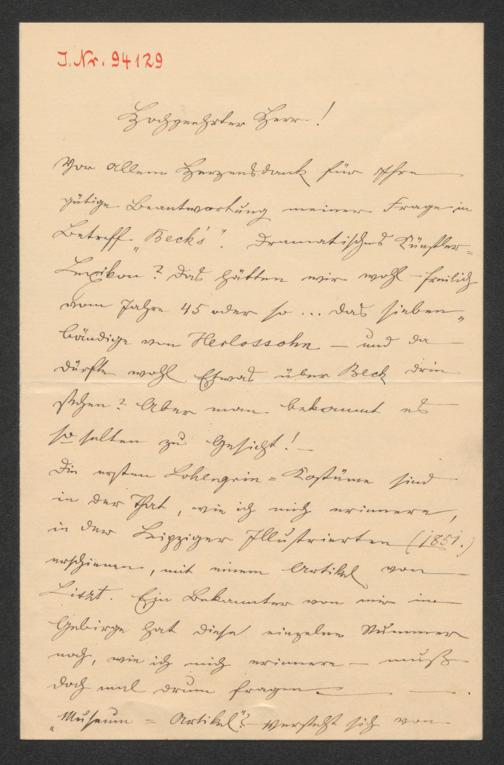 J.Nr. 94129
Hochgeehrter Herr!
Vor allem Herzensdank für Ihre
gütige Beantwortung meiner Frage in
Betreff „Beck's". Dramatisches Künstler-
Lexikon? Das hätten wir wohl freilich
vom Jahre 45 oder so ... das sieben„
bändige von Herlossohn — und da
dürfte wohl Etwas über Beck drin
stehen? Aber man bekommt es
so selten zu Gesicht! —
Die ersten Lohengrin = Kostüme sind
in der That, wie ich mich erinnere,
in der Leipziger Illustrierten (1851.)
erschienen, mit einem Artikel von
Liszt. Ein Bekannter von mir im
Gebirge hat diese einzelne Nummer
noch, wie ich mich erinnere — muß
doch mal drum fragen — — .
„Museum = Artikel"? Versteht sich von